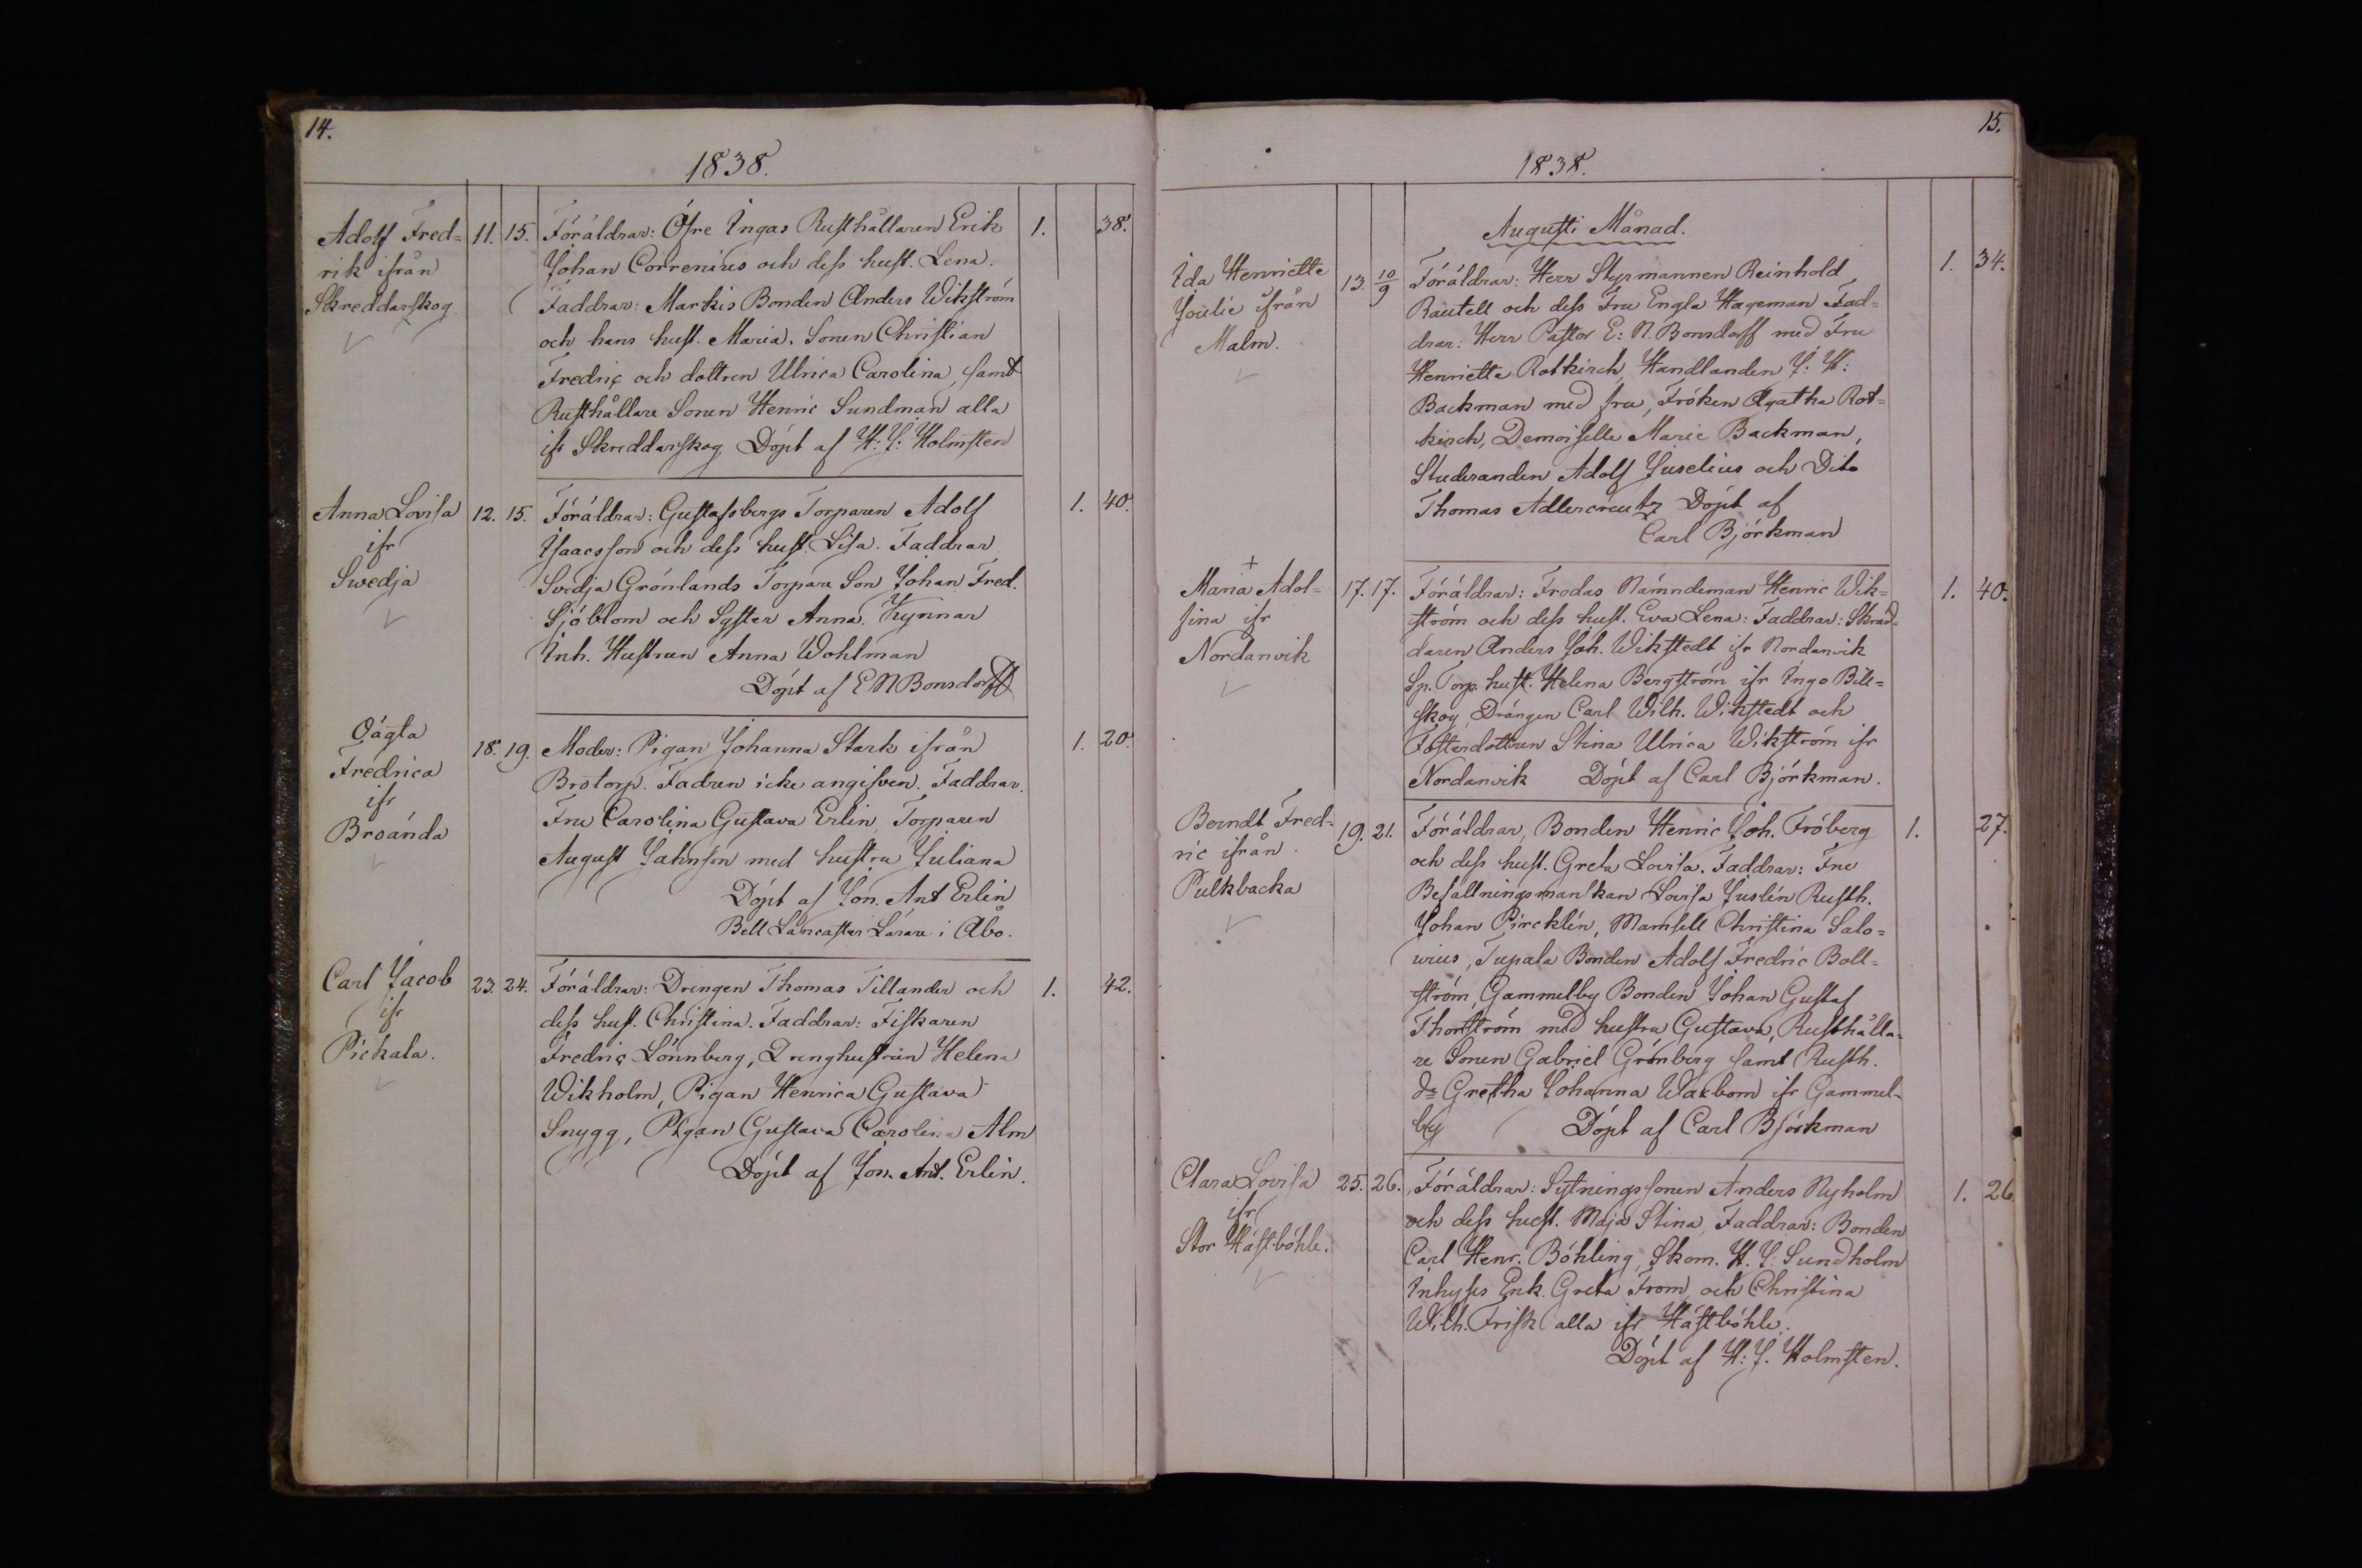 14.
1838.
Adolf Fred=
rik ifrån
Skreddarskog
11. 15.
Föräldrar: Öfre Ingas Rusthållaren Erik
Johan Correnius och dess hust. Lena.
Faddrar: Markis Bonden Anders Wikström
och hans hust. Maria. Sonen Christian
Fredric och dottren Ulrica Carolina, samt
Rusthållare Sonen Henric Sundman alla
ifr Skreddarskog Döpt af H: J: Holmsten
1. 38.
Anna Lovisa
ifr
Swedja
12. 15.
Föräldrar: Gustafsbergs Torparen Adolf
Isaacsson och dess hust. Lisa. Faddrar
Svedja Grönlands Torpare Son Johan Fred.
Sjöblom och Syster Anna. Kynnar
Inh. Hustrun Anna Wohlman
Döpt af E N Bonsdorff
1. 40.
Oägta
Fredrica
ifr
Broända
18. 19.
Moder: Pigan Johanna Stark ifrån
Brotorp. Fadren icke angifven. Faddrar.
Fru Carolina Gustava Erlin, Torparen
August Jahnson med hustru Juliana
Döpt af Jon. Ant Erlin
Bell Lancaster Lärare i Åbo.
1. 20.
Carl Jacob
ifr
Pickala.
23. 24.
Föräldrar: Drengen Thomas Tillander och
dess hust. Christina. Faddrar: Fiskaren
Fredric Lönnberg, Drenghustrun Helena
Wikholm, Pigan Henrica Gustava
Snygg, Pigan Gustava Carolina Alm
Döpt af Jon. Ant. Erlin.
1. 42.
15.
1838.
Augusti Månad.
Ida Henriette
Joulie ifrån
Malm.
13. 10/9
Föräldrar: Herr Styrmannen Reinhold
Rautell och dess Fru Engla Hageman Fad=
drar: Herr Pastor E: N. Bonsdorff med Fru
Henriette Rotkirch, Handlanden J: H:
Backman med fru, Fröken Agatha Rot=
kirch, Demoiselle Marie Backman,
Studeranden Adolf Juselius och Dito
Thomas Adlercreutz Döpt af
Carl Björkman
1. 34.
+
Maria Adol=
fina ifr
Nordanvik
17. 17.
Föräldrar: Frodas Nämndeman Henric Wik=
ström och dess hust. Eva Lena: Faddrar: Skräd=
daren Anders Joh. Wikstedt ifr Nordanvik
Sp. Torp. hust. Helena Bergström ifr Ingo Bill=
skog Drängen Carl Wilh. Wikstedt och
Fosterdottren Stina Ulrica Wikström ifr
Nordanvik Döpt af Carl Björkman.
1. 40.
Berndt Fred=
ric ifrån
Pulkbacka
19. 21.
Föräldrar, Bonden Henric Joh. Fröberg
och dess hust. Greta Lovisa. Faddrar: Fru
Befallningsmanskan Lovisa Juslén Rusth.
Johan Pircklén, Mamsell Christina Salo=
urius, Tupala Bonden Adolf Fredric Boll=
ström, Gammelby Bonden Johan Gustaf
Thorström med hustru Gustava, Rusthålla=
re Sonen Gabriel Grönberg samt Rusth.
dr Gretha Johanna Waxbom ifr Gammel=
by Döpt af Carl Björkman
1. 27.
Clara Lovisa
ifr
Stor Hästböhle.
25. 26.
Föräldrar: Sytningssonen Anders Nyholm
och dess hust. Maja Stina, Faddrar: Bonden
Carl Henr. Böhling, Skom. H. J. Sundholm
Inhyses Enk. Greta From och Christina
Wilh. Frisk alla ifr Hästböhle.
Döpt af H: J. Holmsten.
1. 26